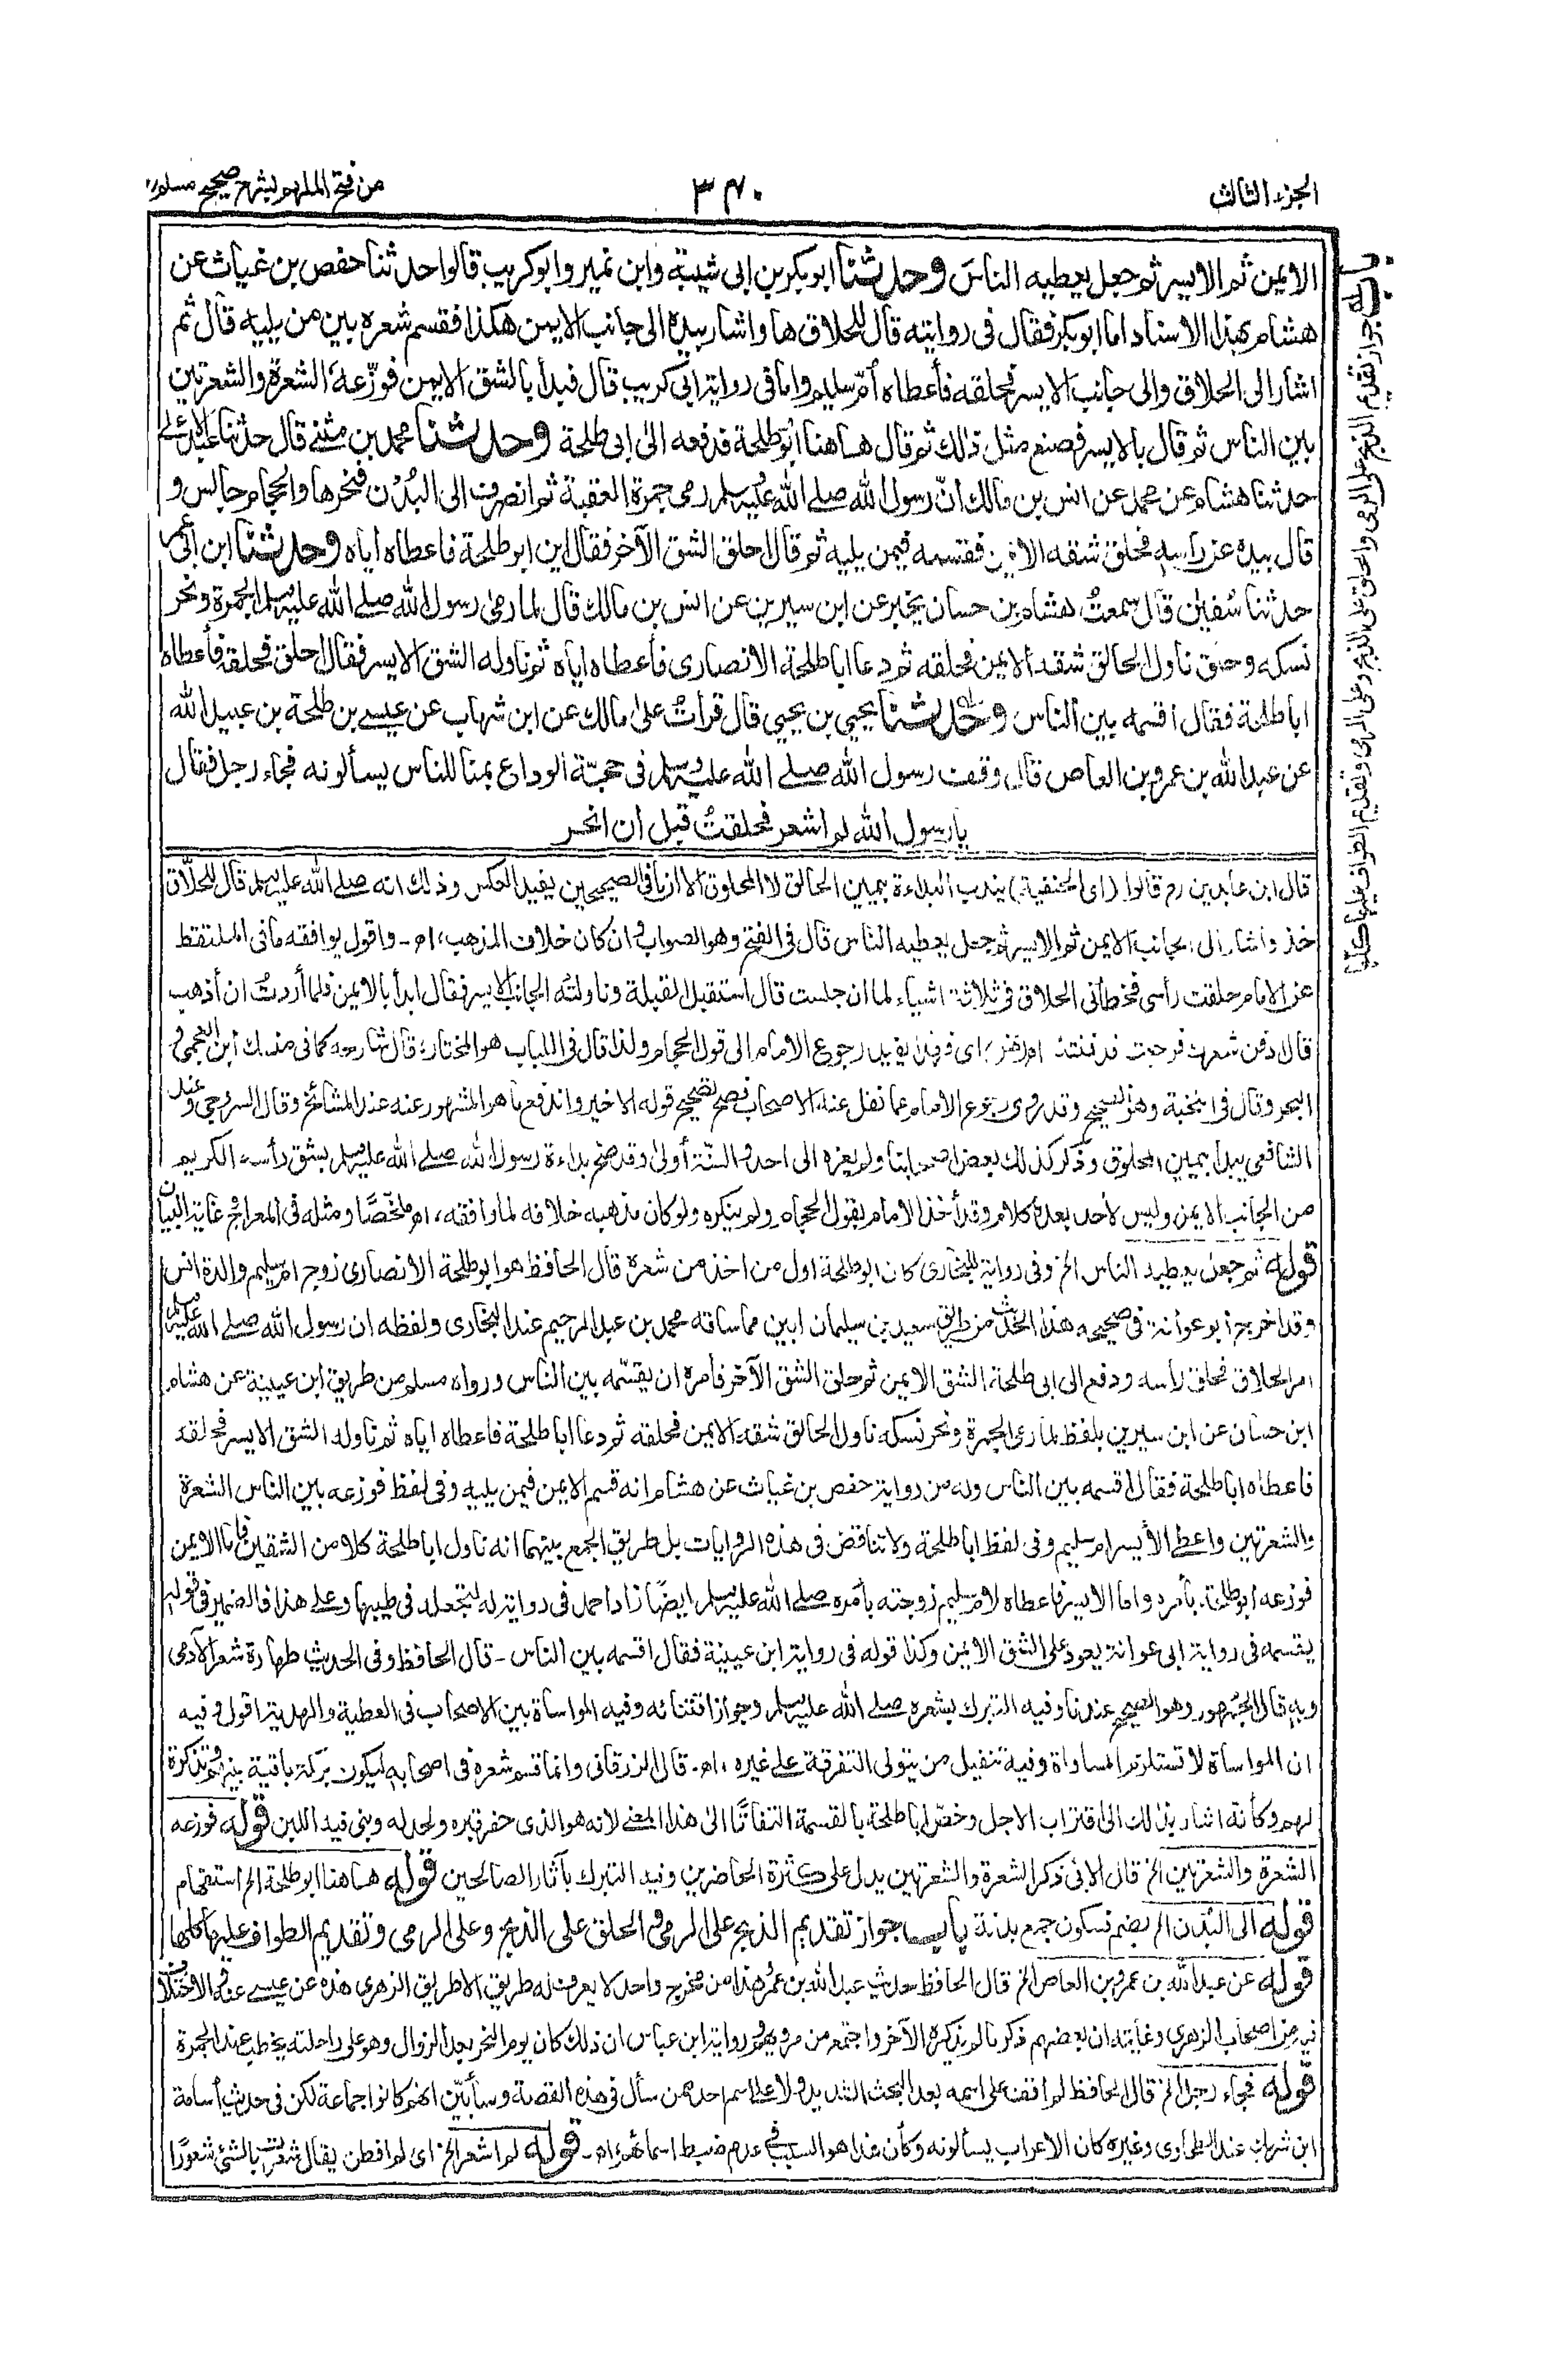 الجزء الثالث
٣٤٠
من فتح الملهم بشرح صحيح مسلم
باب جواز تقديم الذبح على الرمي والحلق على الذبح وعلى الرمي وتقديم الطواف عليها كلها
الايمن ثم الايسر ثم جعل يعطيه الناسَ وحدثنا ابو بكر بن ابى شيبة وابن نمير وابو كريب قالوا حدثنا حفص بن غياث عن
هشام بهذا الاسناد اما ابو بكر فقال فى روايته قال للحلاق ها واشار بيده الى جانب الايمن هكذا فقسم شعره بين من يليه قال ثم
اشار الى الحلاق والى جانب الايسر فحلقه فأعطاه أمّ سليم واما فى رواية ابى كريب قال فبدأ بالشق الايمن فوزّعه الشعرة والشعرتين
بين الناس ثم قال بالايسر فصنع مثل ذلك ثم قال هاهنا ابو طلحة فدفعه الى ابى طلحة وحدثنا محمد بن مثنى قال حدثنا عبد الاعلى
حدثنا هشام عن محمد عن انس بن مالك انّ رسول الله صلى الله عليه وسلم رمى جمرة العقبة ثم انصرف الى البُدْن فنحرها والحجام جالس و
قال بيده عن راسه فحلق شقه الايمن فقسمه فيمن يليه ثم قال احلق الشق الآخر فقال اين ابو طلحة فاعطاه اياه وحدثنا ابن ابى عمر
حدثنا سُفين قال سمعتُ هشام بن حسان يخبر عن ابن سيرين عن انس بن مالك قال لما رمى رسول الله صلى الله عليه وسلم الجمرة ونحر
نسكه وحلق ناول الحالق شقه الايمن فحلقه ثم دعا ابا طلحة الانصارى فأعطاه اياه ثم ناوله الشق الايسر فقال احلق فحلقه فأعطاه
ابا طلحة فقال اقسمه بين الناس وحدثنا يحيى بن يحيى قال قرأتُ على مالك عن ابن شهاب عن عيسى بن طلحة بن عبيد الله
عن عبد الله بن عمرو بن العاص قال وقف رسول الله صلى الله عليه وسلم فى حجّة الوداع بمنا للناس يسألونه فجاء رجل فقال
يا رسول الله لم اشعر فحلقتُ قبل ان انحر
قال ابن عابدين رح قالوا (اى الحنفية) يندب البداءة بيمين الحالق لا المحلوق الا ان ما فى الصحيحين يفيد العكس وذلك انه صلى الله عليه وسلم قال للحلّاق
خذ واشار الى الجانب الايمن ثم الايسر ثم جعل يعطيه الناس قال فى الفتح وهو الصواب وان كان خلاف المذهب، اھ - واقول يوافقه ما فى الملتقط
عن الامام حلقت رأسى فخطأنى الحلاق فى ثلاثة اشياء لما ان جلست قال استقبل القبلة وناولته الجانب الايسر فقال ابدأ بالايمن فلما أردتُ ان أذهب
قال ادفن شعرك فرجعت فدفنته اھ نهر، اى فهذا يفيد رجوع الامام الى قول الحجام ولذا قال فى اللباب هو المختار، قال شارحه كما فى منسك ابن العجمى و
البحر وقال فى النخبة وهو الصحيح وقد روى رجوع الامام عما نقل عنه الاصحاب فصح تصحيح قوله الاخير واندفع ما هو المشهور عنه عند المشائخ وقال السروجى وعند
الشافعى يبدأ بيمين المحلوق وذكر كذلك بعض اصحابنا ولم يعزه الى احد والسنّة أولى وقد صح بداءة رسول الله صلى الله عليه وسلم بشق رأسه الكريم
من الجانب الايمن وليس لأحد بعده كلام وقد أخذ الامام بقول الحجام ولم ينكره ولو كان مذهبه خلافه لما وافقه، اھ ملخّصًا ومثله فى المعراج وغاية البيان
قوله ثم جعل يعطيه الناس الخ وفى رواية للبخارى كان ابو طلحة اول من اخذ من شعره قال الحافظ هو ابو طلحة الانصارى زوج ام سليم والدة انس
وقد اخرج أبو عوانة فى صحيحه هذا الحديث من طريق سعيد بن سليمان ابين مما ساقه محمد بن عبد الرحيم عند البخارى ولفظه ان رسول الله صلى الله عليه وسلم
امر الحلاق فحلق رأسه ودفع الى ابى طلحة الشق الايمن ثم حلق الشق الآخر فأمره ان يقسّمه بين الناس ورواه مسلم من طريق ابن عيينة عن هشام
ابن حسان عن ابن سيرين بلفظ لما رمى الجمرة ونحر نسكه ناول الحالق شقه الايمن فحلقه ثم دعا ابا طلحة فاعطاه اياه ثم ناوله الشق الايسر فحلقه
فاعطاه ابا طلحة فقال اقسمه بين الناس وله من رواية حفص بن غياث عن هشام انه قسم الايمن فيمن يليه وفى لفظ فوزعه بين الناس الشعرة
والشعرتين واعطى الأيسر ام سليم وفى لفظ ابا طلحة ولا تناقض فى هذه الروايات بل طريق الجمع بينهما انه ناول ابا طلحة كلا من الشقين فاما الايمن
فوزعه ابو طلحة بأمره واما الايسر فاعطاه لام سليم زوجته بأمره صلى الله عليه وسلم ايضًا زاد احمد فى رواية له لتجعله فى طيبها وعلى هذا فالضمير فى قوله
يقسمه فى رواية ابى عوانة يعود على الشق الايمن وكذا قوله فى رواية ابن عيينة فقال اقسمه بين الناس - قال الحافظ وفى الحديث طهارة شعر الآدمى
وبه قال الجمهور وهو الصحيح عندنا وفيه التبرك بشعره صلى الله عليه وسلم وجواز اقتنائه وفيه المواساة بين الاصحاب فى العطية والهدية اقول وفيه
ان المواساة لا تستلزم المساواة وفيه تنفيل من يتولى التفرقة على غيره، اھ. قال الزرقانى وانما قسم شعره فى اصحابه ليكون بركة باقية بينهم وتذكرة
لهم وكأنه اشار بذلك الى اقتراب الاجل وخصّ ابا طلحة بالقسمة التفاتًا الى هذا المعنى لانه هو الذى حفر قبره ولحد له وبنى فيه اللبن قوله فوزعه
الشعرة والشعرتين الخ قال الابى ذكر الشعرة والشعرتين يدل على كثرة الحاضرين وفيه التبرك بآثار الصالحين قوله هاهنا ابو طلحة الخ استفهام
قوله الى البُدْن الخ بضم فسكون جمع بدنة باب جواز تقديم الذبح على الرمى والحلق على الذبح وعلى الرمى وتقديم الطواف عليها كلها
قوله عن عبد الله بن عمرو بن العاص الخ قال الحافظ حديث عبد الله بن عمرو هذا من مخرج واحد لا يعرف له طريق الا طريق الزهرى هذه عن عيسى عنه والاختلاف
فيه من اصحاب الزهرى وغايته ان بعضهم ذكر ما لم يذكره الآخر واجتمع من مرويهم ورواية ابن عباس ان ذلك كان يوم النحر بعد الزوال وهو على راحلته يخطب عند الجمرة
قوله فجاء رجل الخ قال الحافظ لم اقف على اسمه بعد البحث الشديد ولا على اسم احد ممن سأل فى هذه القصة وسأبيّن انهم كانوا جماعة لكن فى حديث أسامة
ابن شريك عند الطحاوى وغيره كان الاعراب يسألونه وكأن هذا هو السبب فى عدم ضبط اسمائهم، اھ - قوله لم اشعر الخ اى لم افطن يقال شعرت بالشئ شعورًا